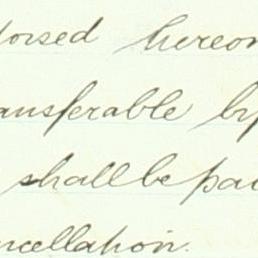 dorsed hereon
ansferable by
shall be pai
ncellation.